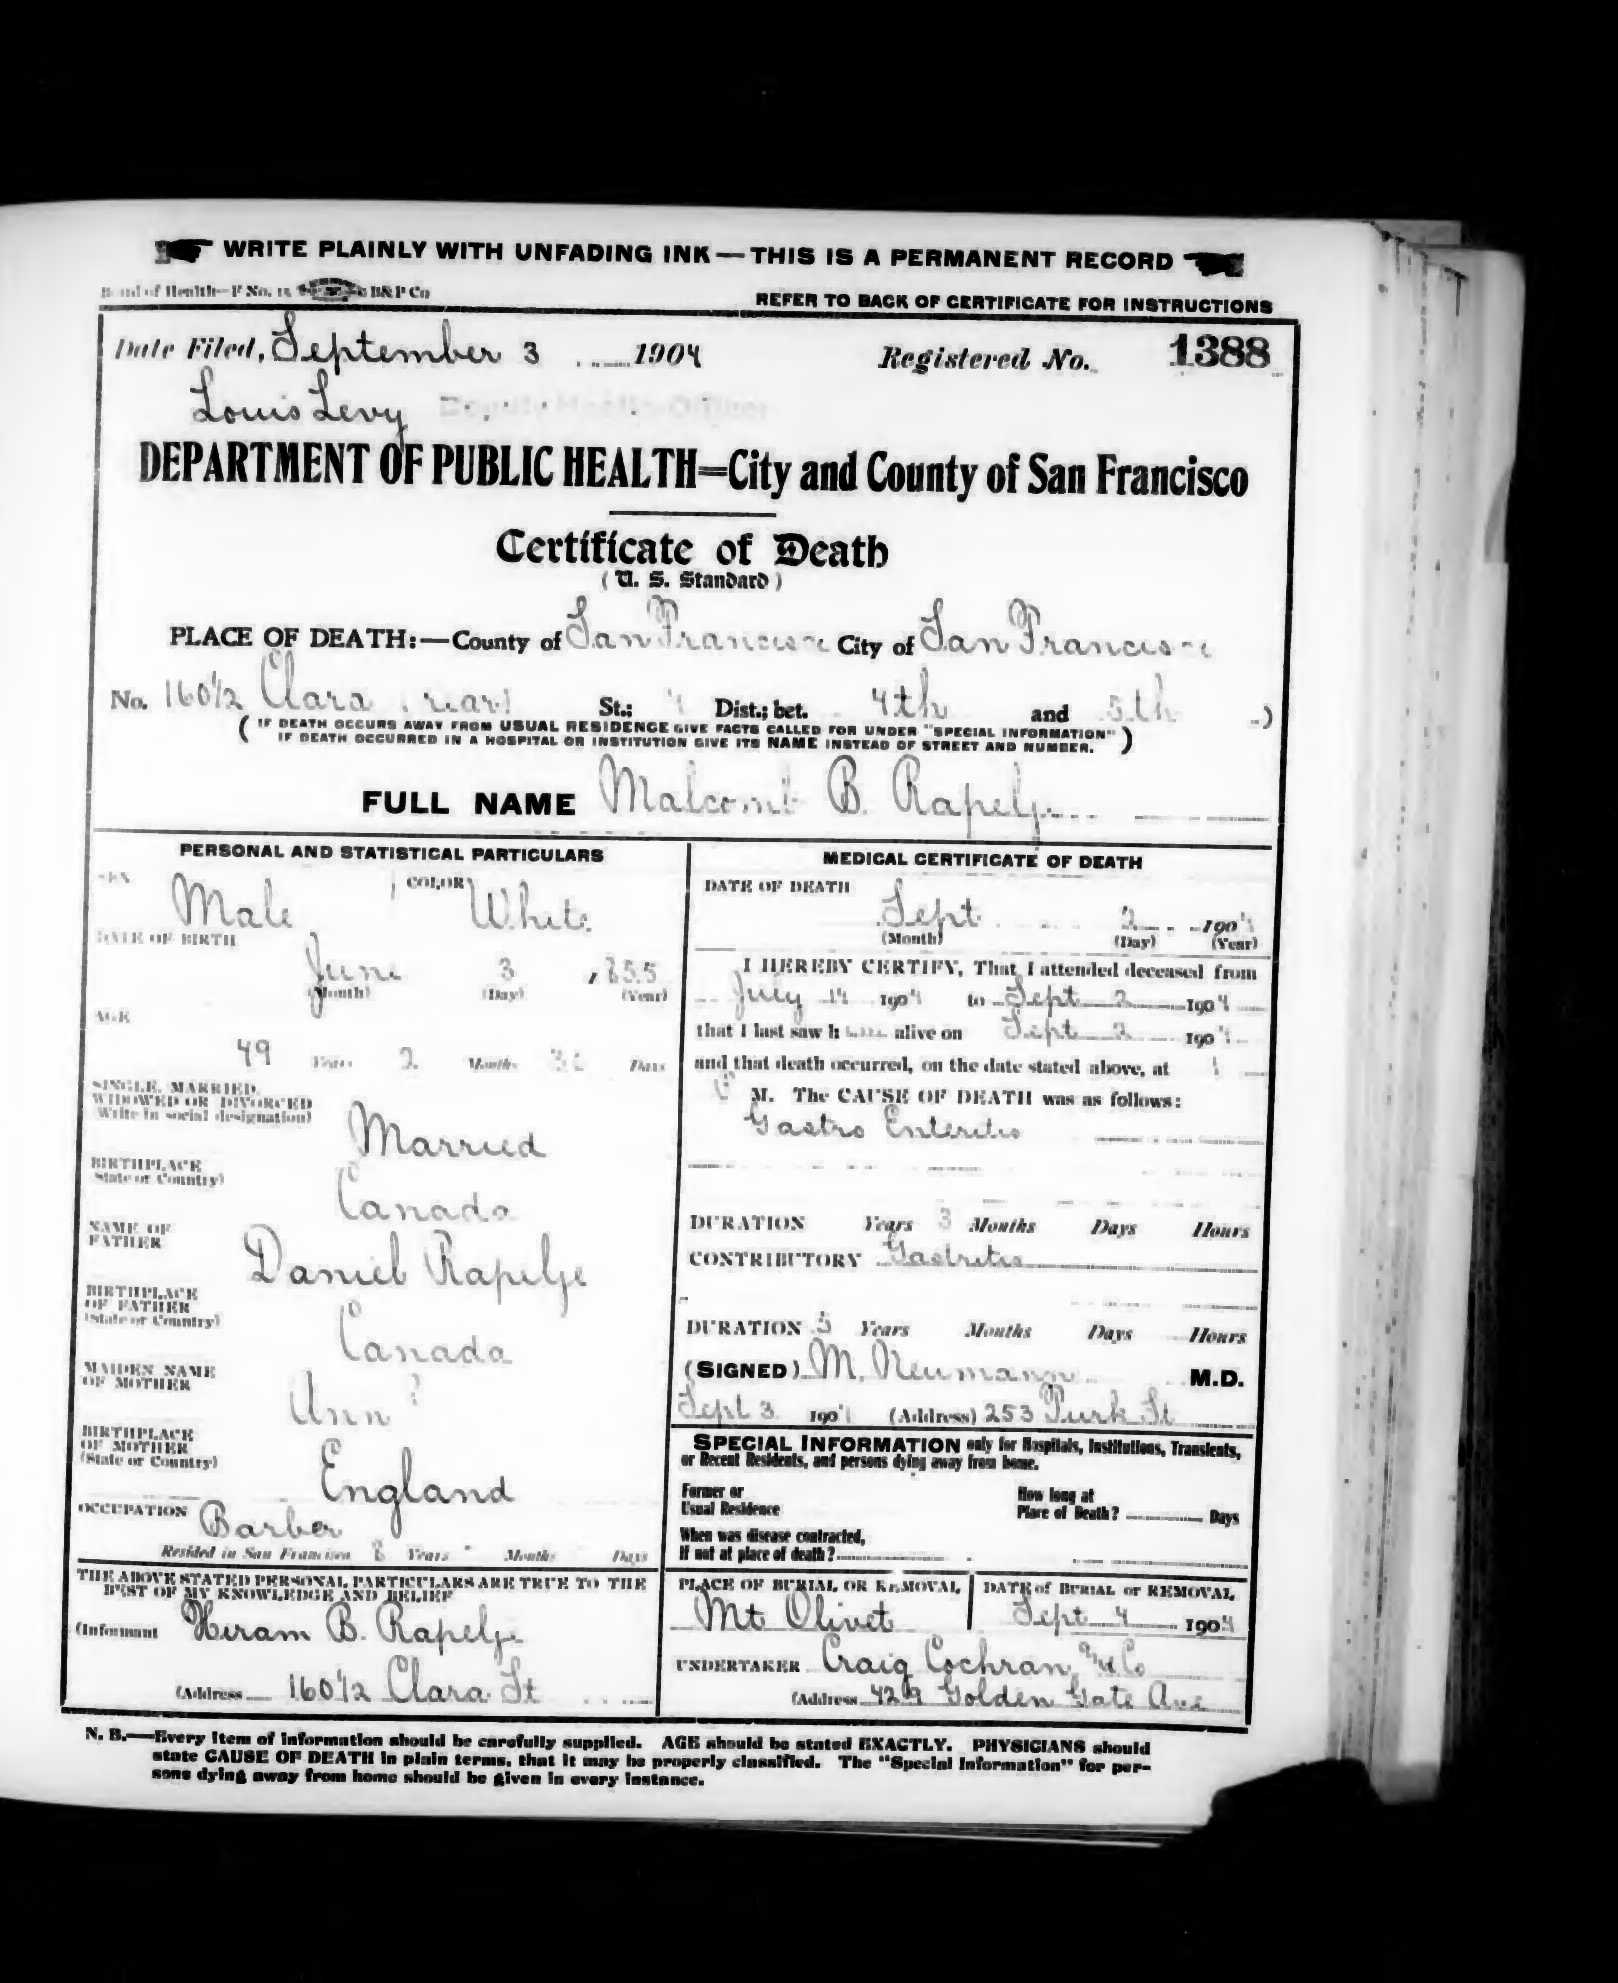 WRITE PLAINLY WITH UNFADING INK—THIS IS A PERMANENT RECORD
Board of Health—F No. 11 B&P Co
REFER TO BACK OF CERTIFICATE FOR INSTRUCTIONS
Date Filed, September 3 1904 Registered No. 1388
Louis Levy Deputy Health Officer
DEPARTMENT OF PUBLIC HEALTH=City and County of San Francisco
Certificate of Death
(U. S. Standard)
PLACE OF DEATH:—County of San Francisco City of San Francisco
No. 160 1/2 Clara (rear) St.; 4 Dist.; bet. 4th and 5th )
( IF DEATH OCCURS AWAY FROM USUAL RESIDENCE GIVE FACTS CALLED FOR UNDER "SPECIAL INFORMATION"
IF DEATH OCCURRED IN A HOSPITAL OR INSTITUTION GIVE ITS NAME INSTEAD OF STREET AND NUMBER. )
FULL NAME Malcomb B. Rapelje
PERSONAL AND STATISTICAL PARTICULARS
SEX Male COLOR White
DATE OF BIRTH
June 3 , 855
(Month) (Day) (Year)
AGE
49 Years 2 Months Days
SINGLE, MARRIED,
WIDOWED OR DIVORCED
(Write in social designation)
Married
BIRTHPLACE
(State or Country)
Canada
NAME OF
FATHER
Daniel Rapelje
BIRTHPLACE
OF FATHER
(State or Country)
Canada
MAIDEN NAME
OF MOTHER
Ann ?
BIRTHPLACE
OF MOTHER
(State or Country)
England
OCCUPATION Barber
Resided in San Francisco 8 Years - Months - Days
THE ABOVE STATED PERSONAL PARTICULARS ARE TRUE TO THE
BEST OF MY KNOWLEDGE AND BELIEF
(Informant Hiram B. Rapelje
(Address 160 1/2 Clara St
MEDICAL CERTIFICATE OF DEATH
DATE OF DEATH
Sept 2 1904
(Month) (Day) (Year)
I HEREBY CERTIFY, That I attended deceased from
July 14 1904 to Sept 2 1904
that I last saw h alive on Sept 2 1904
and that death occurred, on the date stated above, at
M. The CAUSE OF DEATH was as follows:
Gastro Enteritis
DURATION Years 3 Months Days Hours
CONTRIBUTORY Gastritis
DURATION 5 Years Months Days Hours
(SIGNED) M. Neumann M.D.
Sept 3 1904 (Address) 253 Turk St
SPECIAL INFORMATION only for Hospitals, Institutions, Transients,
or Recent Residents, and persons dying away from home.
Former or
Usual Residence
How long at
Place of Death? Days
When was disease contracted,
If not at place of death?
PLACE OF BURIAL OR REMOVAL
Mt Olivet
DATE of BURIAL or REMOVAL
Sept 4 1904
UNDERTAKER Craig Cochran & Co
(Address 429 Golden Gate Ave
N. B.—Every item of information should be carefully supplied. AGE should be stated EXACTLY. PHYSICIANS should
state CAUSE OF DEATH in plain terms, that it may be properly classified. The "Special Information" for per-
sons dying away from home should be given in every instance.